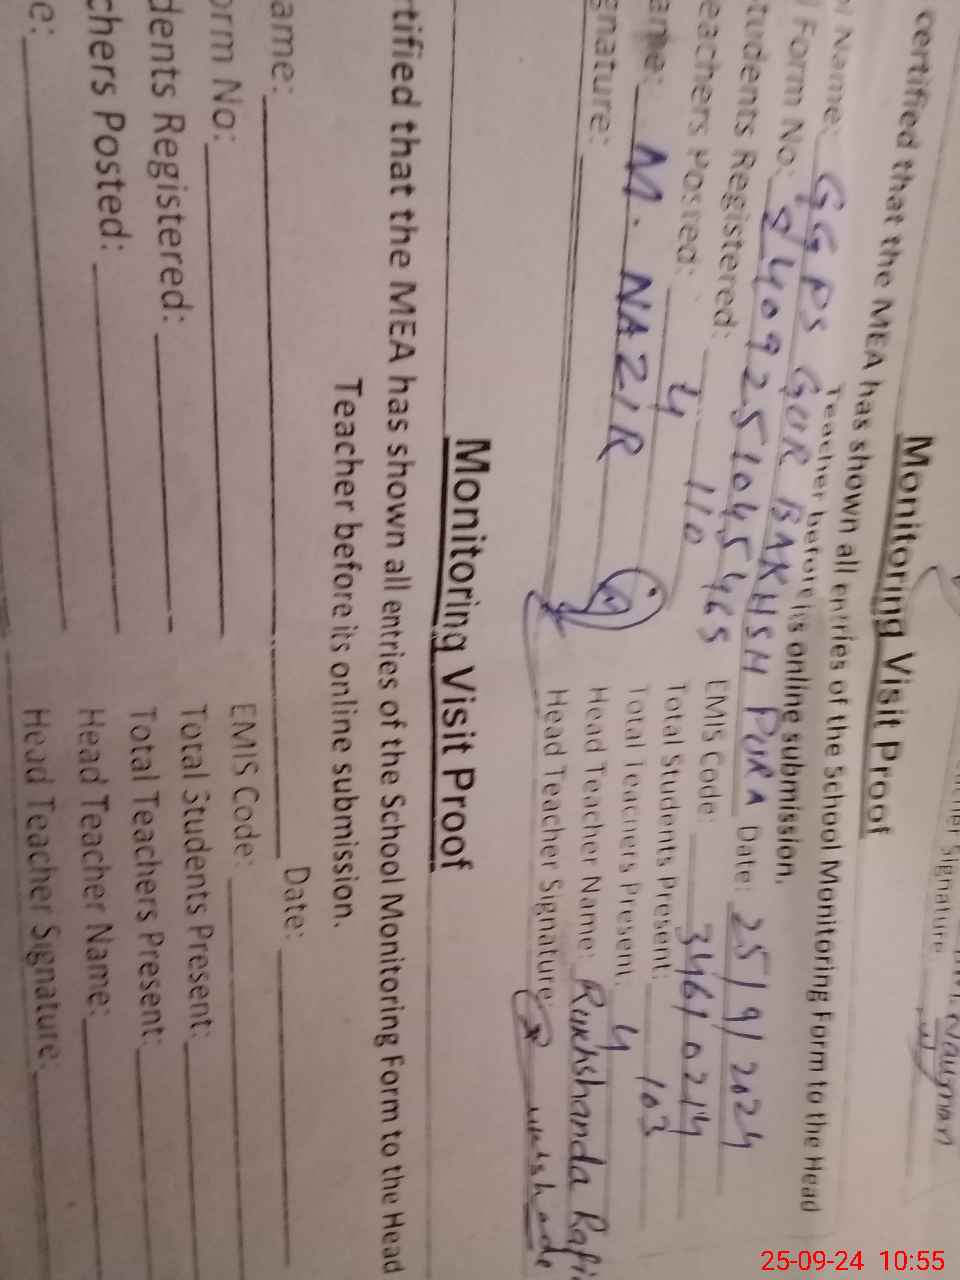 cher Signature
Nauman
Monitoring Visit Proof
certified that the MEA has shown all entries of the School Monitoring Form to the Head
Teacher before its online submission.
Name: GGPS GUR BAKHSH PURA Date: 25/9/2024
Form No: 9409251045465 EMIS Code: 34610214
tudents Registered: 110 Total Students Present: 103
eachers Posted: 4 Total Teachers Present: 4
ame: M. NAZIR Head Teacher Name: Rukhshanda Rafi
gnature: Head Teacher Signature:
Monitoring Visit Proof
rtified that the MEA has shown all entries of the School Monitoring Form to the Head
Teacher before its online submission.
ame: Date:
orm No: EMIS Code:
dents Registered: Total Students Present:
chers Posted: Total Teachers Present:
e: Head Teacher Name:
Head Teacher Signature:
25-09-24 10:55